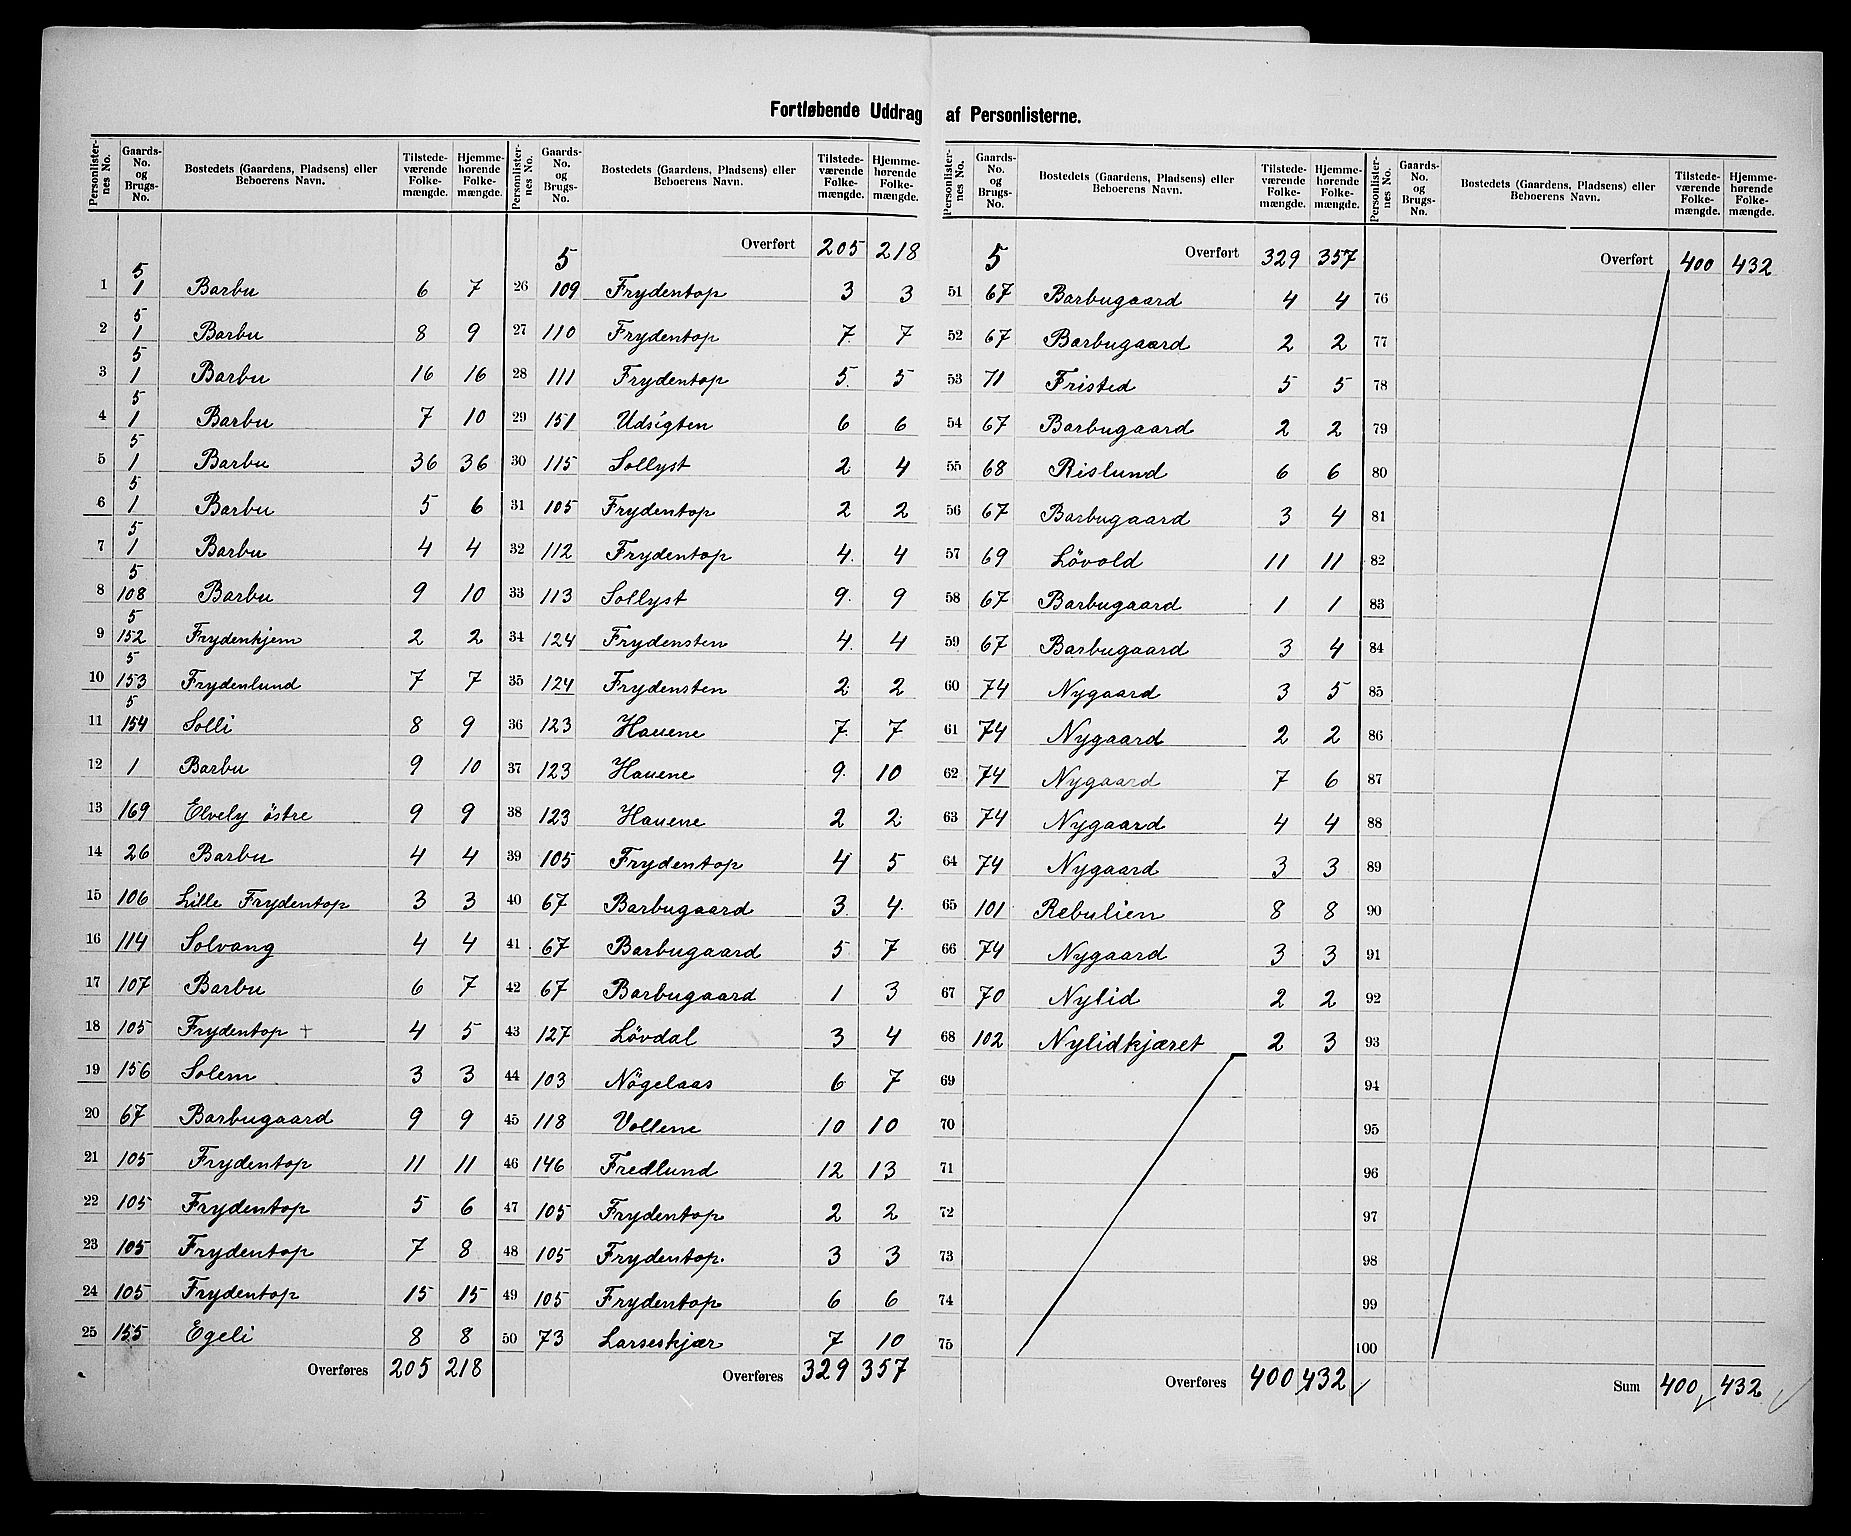 Fortløbende Uddrag af Personlisterne.
Personlister-nes No. | Gaards-No. og Brugs-No. | Bostedets (Gaardens, Pladsens) eller Beboerens Navn. | Tilstede-værende Folke-mængde. | Hjemme-hørende Folke-mængde.
1 5/1 Barbu 6 7
2 5/1 Barbu 8 9
3 5/1 Barbu 16 16
4 5/1 Barbu 7 10
5 5/1 Barbu 36 36
6 5/1 Barbu 5 6
7 5/1 Barbu 4 4
8 5/108 Barbu 9 10
9 5/152 Frydenhjem 2 2
10 5/153 Frydenlund 7 7
11 5/154 Solli 8 9
12 1 Barbu 9 10
13 169 Elvely östre 9 9
14 26 Barbu 4 4
15 106 Lille Frydentop 3 3
16 114 Solvang 4 4
17 107 Barbu 6 7
18 105 Frydentop + 4 5
19 156 Solem 3 3
20 67 Barbugaard 9 9
21 105 Frydentop 11 11
22 105 Frydentop 5 6
23 105 Frydentop 7 8
24 105 Frydentop 15 15
25 155 Egeli 8 8
Overføres 205 218
Personlister-nes No. | Gaards-No. og Brugs-No. | Bostedets (Gaardens, Pladsens) eller Beboerens Navn. | Tilstede-værende Folke-mængde. | Hjemme-hørende Folke-mængde.
5 Overført 205 218
26 109 Frydentop 3 3
27 110 Frydentop 7 7
28 111 Frydentop 5 5
29 151 Udsigten 6 6
30 115 Sollyst 2 4
31 105 Frydentop 2 2
32 112 Frydentop 4 4
33 113 Sollyst 9 9
34 124 Frydensten 4 4
35 124 Frydensten 2 2
36 123 Hauene 7 7
37 123 Hauene 9 10
38 123 Hauene 2 2
39 105 Frydentop 4 5
40 67 Barbugaard 3 4
41 67 Barbugaard 5 7
42 67 Barbugaard 1 3
43 127 Lövdal 3 4
44 103 Nögelaas 6 7
45 118 Vollene 10 10
46 146 Fredlund 12 13
47 105 Frydentop 2 2
48 105 Frydentop. 3 3
49 105 Frydentop 6 6
50 73 Larseskjær 7 10
Overføres 329 357
Personlister-nes No. | Gaards-No. og Brugs-No. | Bostedets (Gaardens, Pladsens) eller Beboerens Navn. | Tilstede-værende Folke-mængde. | Hjemme-hørende Folke-mængde.
5 Overført 329 357
51 67 Barbugaard 4 4
52 67 Barbugaard 2 2
53 71 Fristed 5 5
54 67 Barbugaard 2 2
55 68 Rislund 6 6
56 67 Barbugaard 3 4
57 69 Lövold 11 11
58 67 Barbugaard 1 1
59 67 Barbugaard 3 4
60 74 Nygaard 3 5
61 74 Nygaard 2 2
62 74 Nygaard 7 6
63 74 Nygaard 4 4
64 74 Nygaard 3 3
65 101 Rebulien 8 8
66 74 Nygaard 3 3
67 70 Nylid 2 2
68 102 Nylidkjæret 2 3
69
70
71
72
73
74
75
Overføres 400 432
Personlister-nes No. | Gaards-No. og Brugs-No. | Bostedets (Gaardens, Pladsens) eller Beboerens Navn. | Tilstede-værende Folke-mængde. | Hjemme-hørende Folke-mængde.
Overført 400 432
76
77
78
79
80
81
82
83
84
85
86
87
88
89
90
91
92
93
94
95
96
97
98
99
100
Sum 400 432